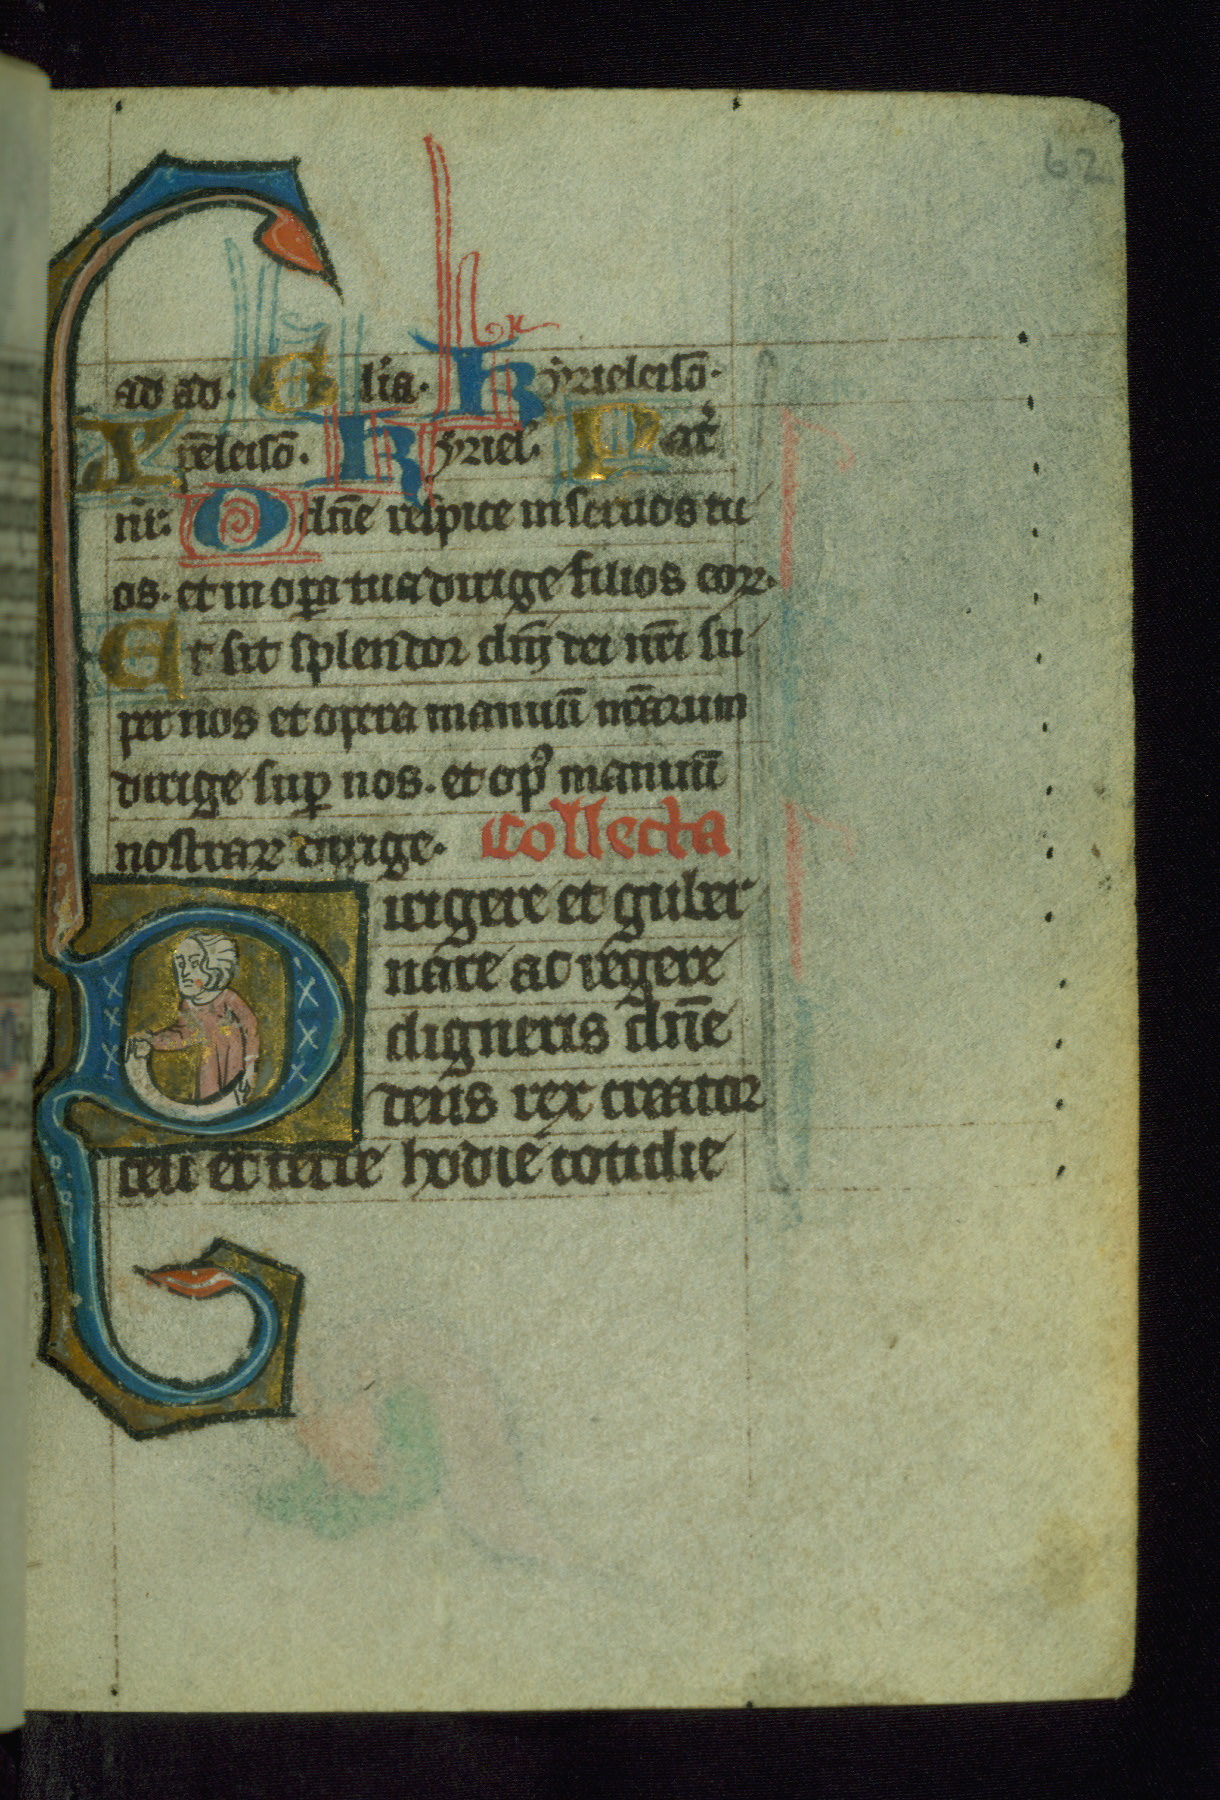 62
ad ad. Gl'ia. Kyrieleisō.
Xp̄eleisō. Kyriel'. Pat'
nr̄: O dn̄e respice in seruos tu
os. et in oꝑa tua dirige filios eoꝝ.
Et sit splendor dn̄i dei nr̄i su
per nos et opera manuū nr̄arum
dirige suꝑ nos. et op' manuū
nostraꝝ dirige. Collecta
Dirigere et guber
nare ac regere
digneris dn̄e
deus rex creator
celi et terre hodie cotidie